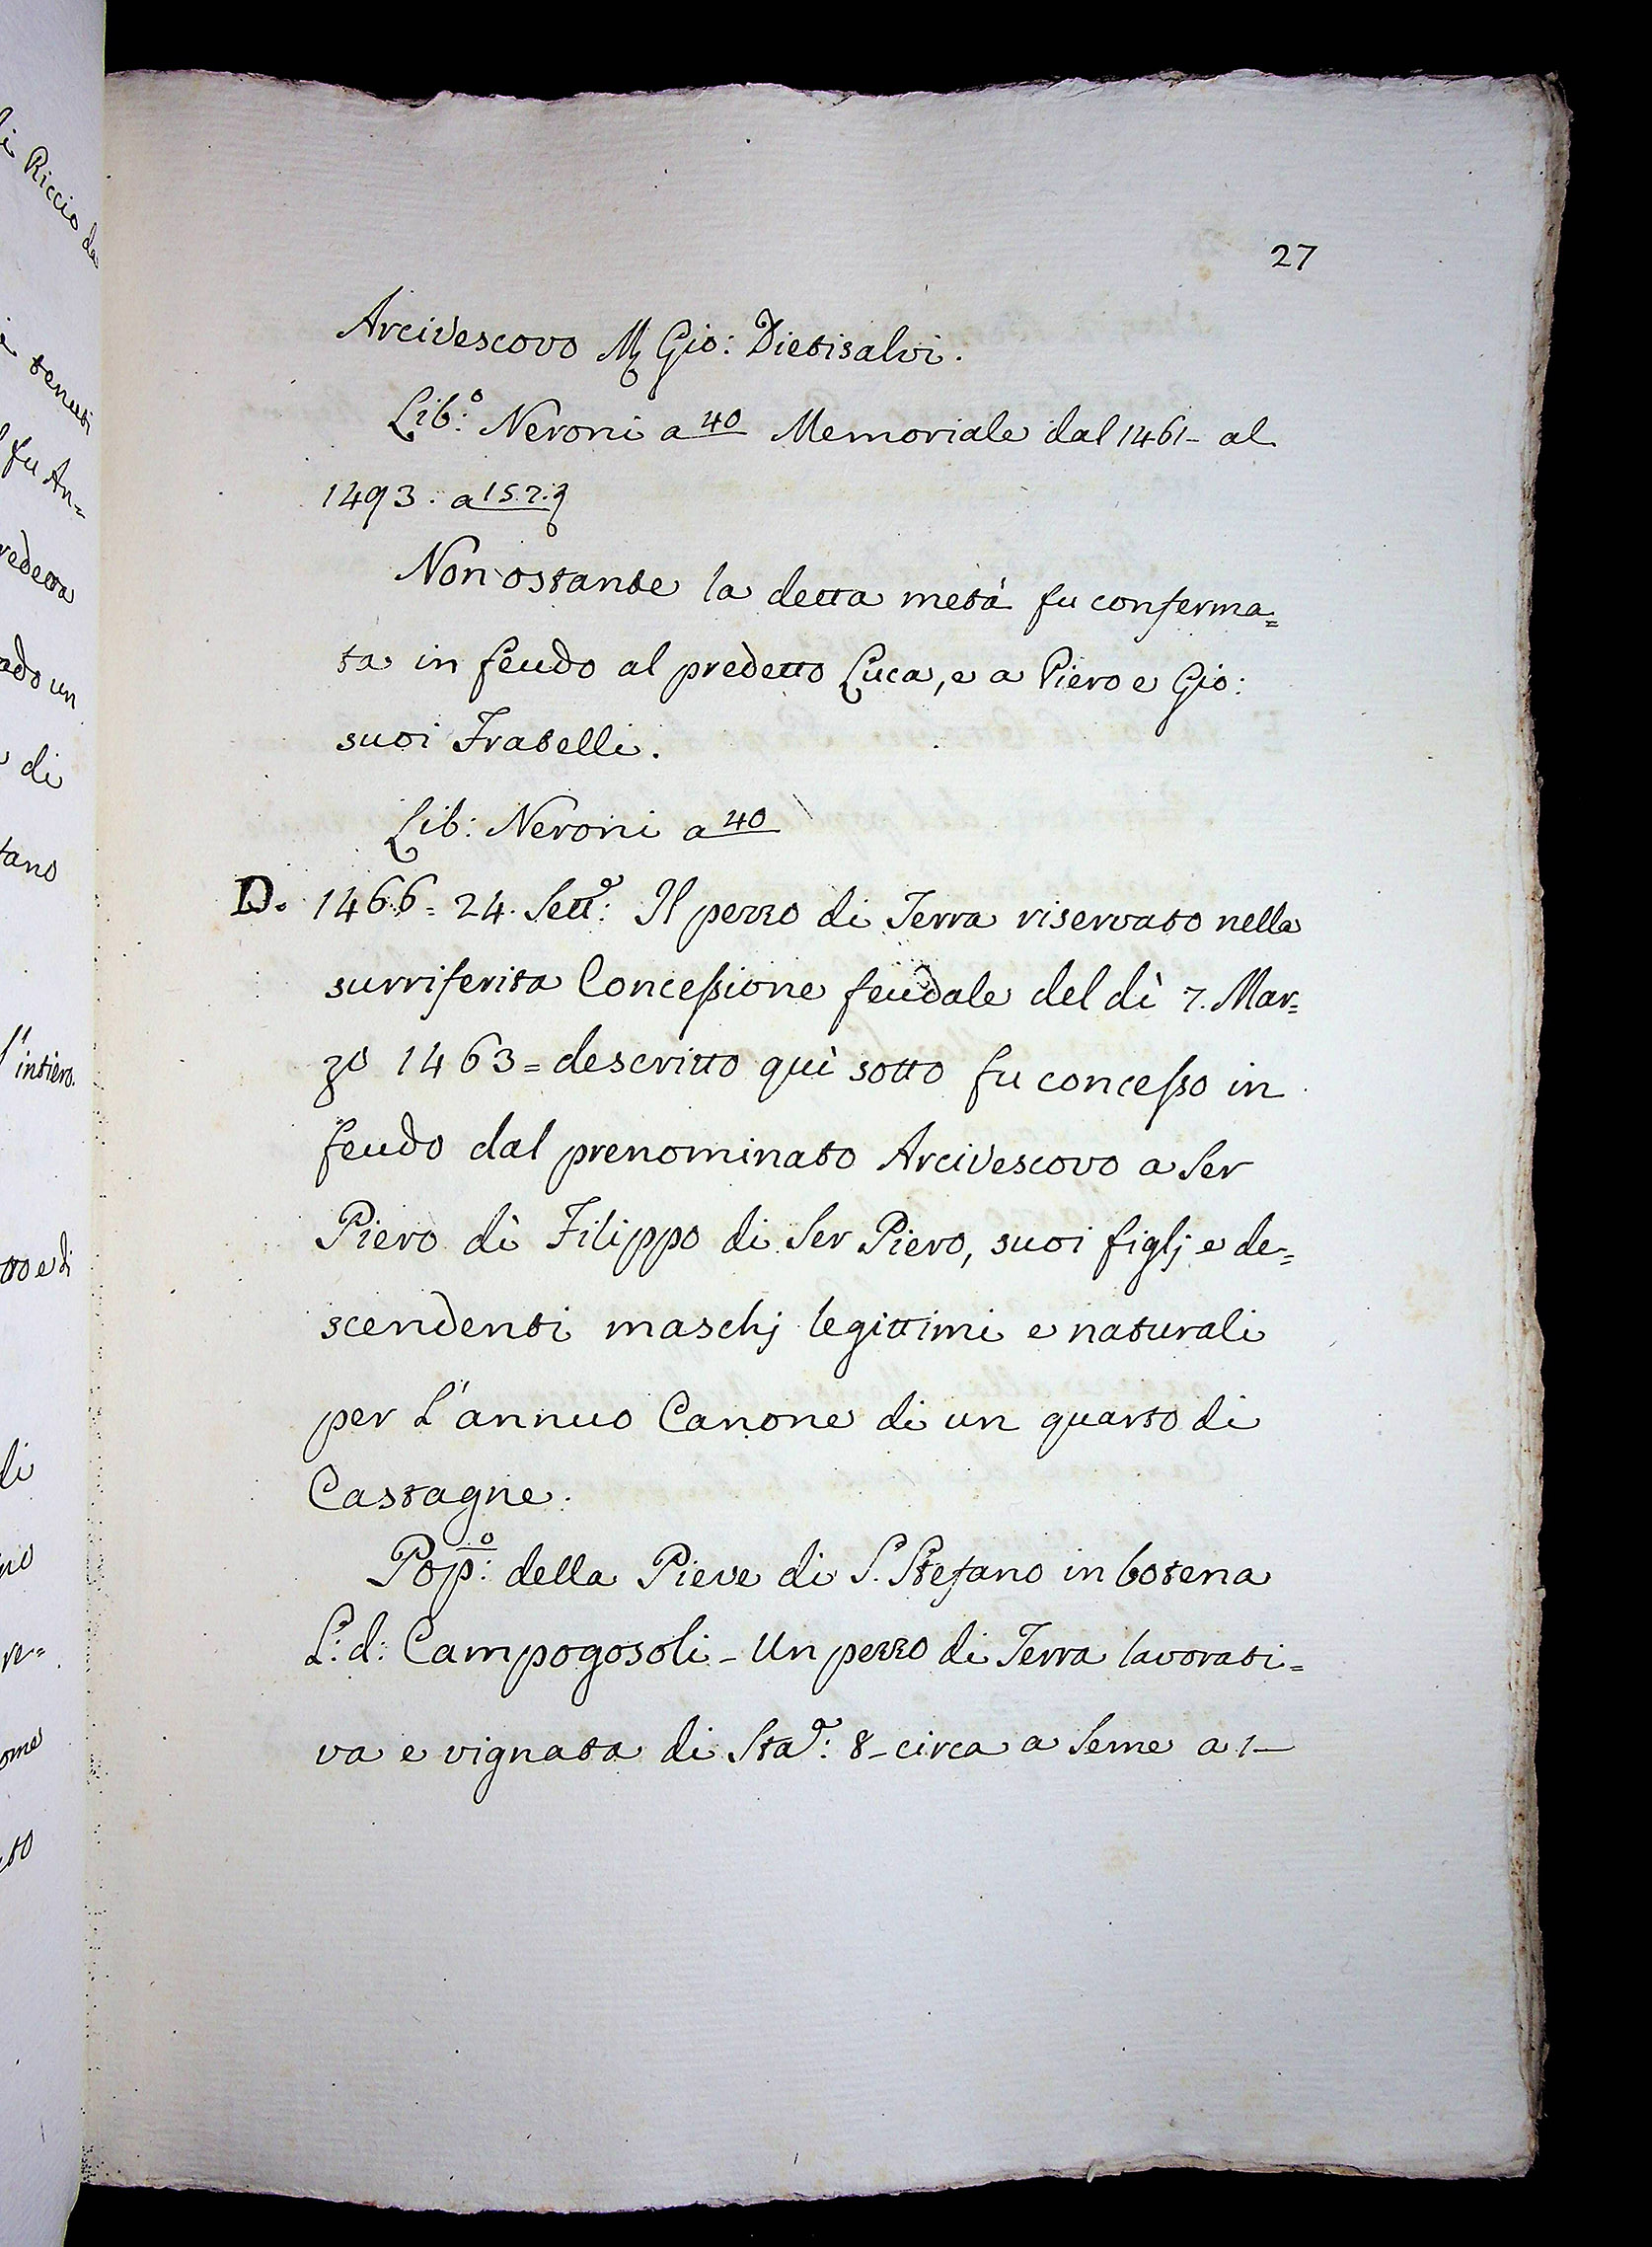 27
Arcivescovo M Gio: Dietisalvi.
Lib:º Neroni a 40 Memoriale dal 1461 - al
1493. a
Non ostante la detta metà fu conferma=
ta in feudo al predetto Luca, e a Piero e Gio:
suoi Fratelli.
Lib: Neroni a 40
D. 1466 = 24. Sette: Il pezzo di Terra riservato nella
surriferita Concessione feudale del dì 7. Mar=
zo 1463 = descritto quì sotto fu concesso in
feudo dal prenominato Arcivescovo a Ser
Piero dì Filippo di Ser Piero, suoi figlj e de=
scendenti maschj legittimi e naturali
per L'annuo Canone di un quarto di
Castagne.
Pop:º della Pieve di S. Stefano in botena
L: d: Campogosoli - Un pezzo di Terra lavorati=
va e vignata di Sta: 8 - circa a Seme a 1 -
li Riccio da
tenuti
fu An=
redetta
ado un
di
tano
l'intiero.
e di
di
re=
ome
to